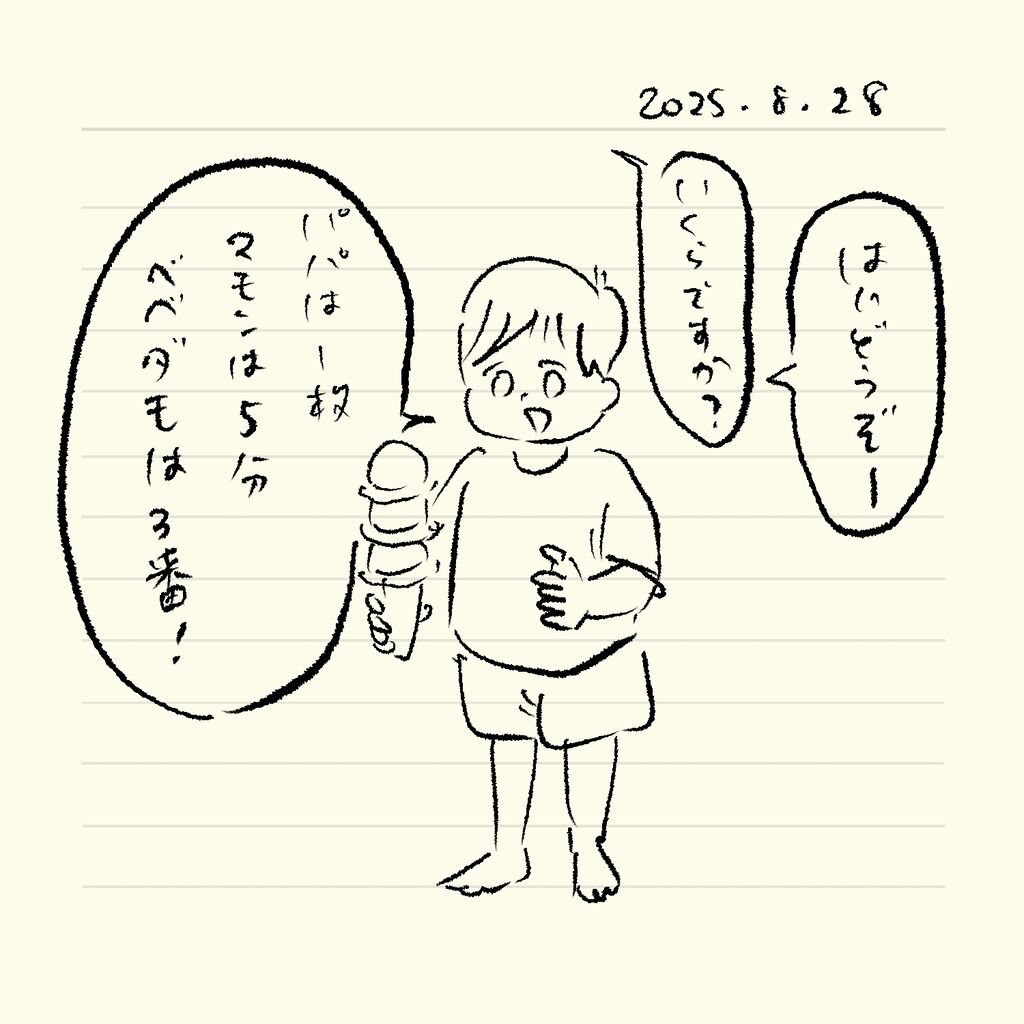 2025.8.28
はいどうぞー
いくらですか?
パパは一枚
マモンは5分
ベベダモは3番!